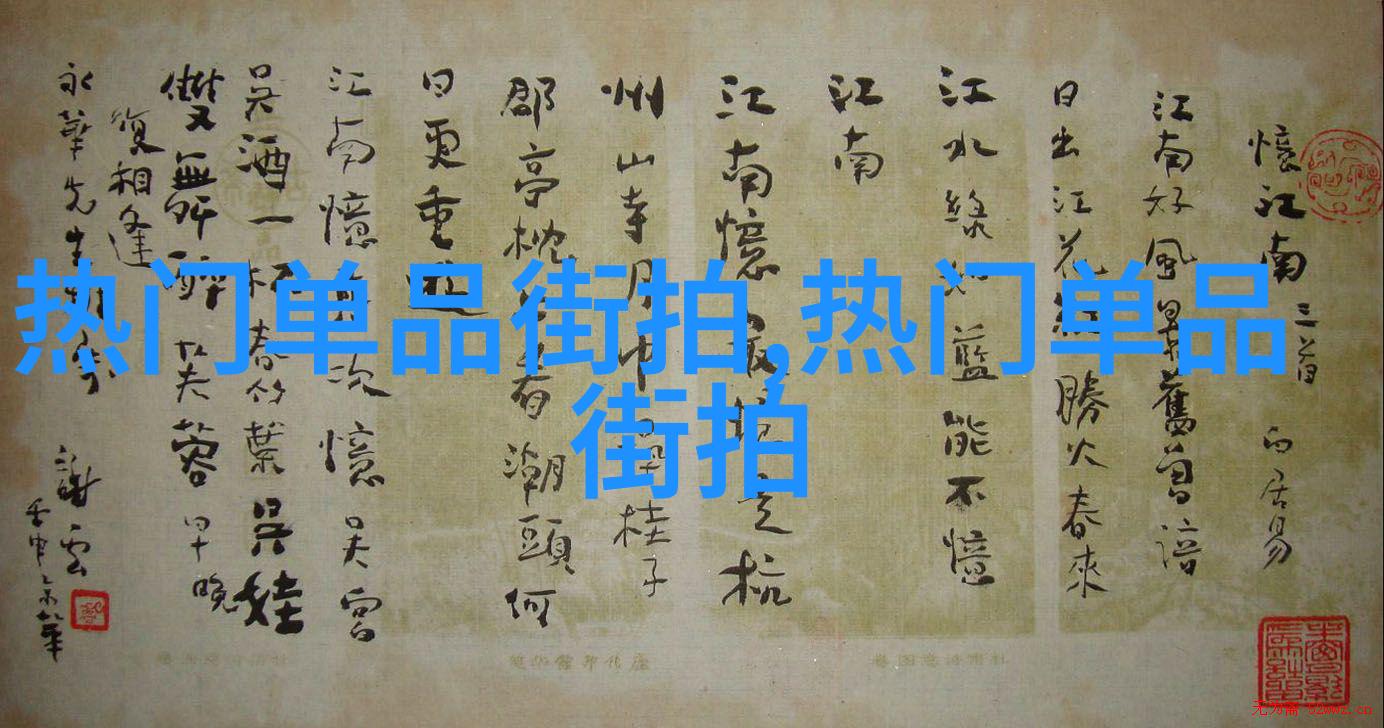 热门单品街拍,热门单品
街拍
憶江南 三首 白居易
江南好風景舊曾諳
日出江花紅勝火春來
江水綠如藍能不憶
江南
江南憶最憶是杭
州山寺月中尋桂子
郡亭枕上看潮頭何
日更重遊
江南憶其次憶吳宮
吳酒一杯春竹葉吳娃
雙舞醉芙蓉早晚
復相逢
永華先生
謝雲
壬申京華